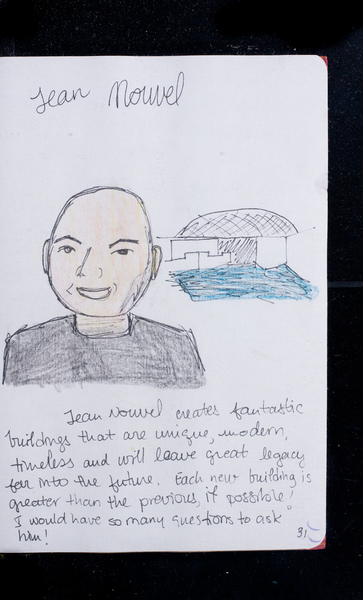 Jean Nouvel
Jean Nouvel creates fantastic
buildings that are unique, modern,
timeless and will leave great legacy
far into the future. Each new building is
greater than the previous, if possible!
I would have so many questions to ask
him!
31